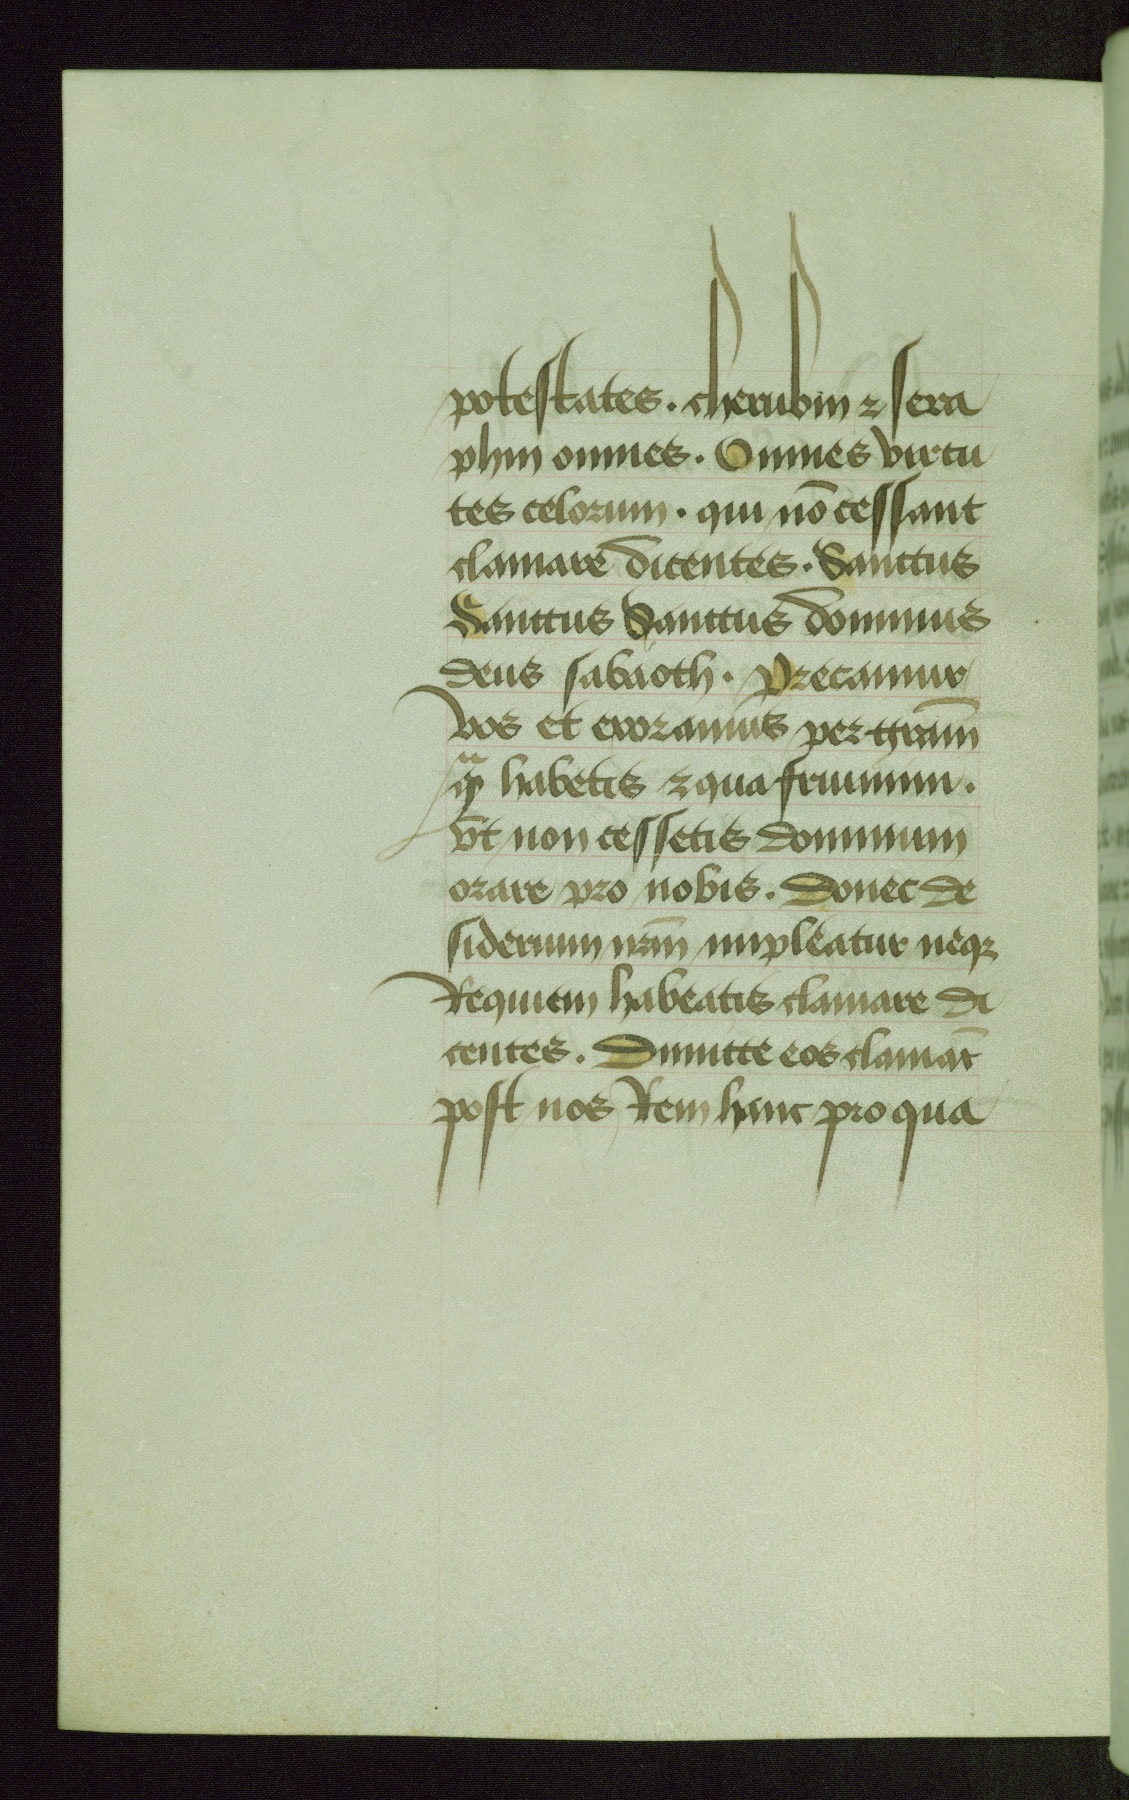 potestates. cherubin ⁊ sera
phin omnes. Omnes virtu
tes celorum. qui nō cessant
clamare dicentes. Sanctus
Sanctus Sanctus dominus
deus sabaoth. Precamur
vos et exoramus per grām
qͣ habetis ⁊ qua fruimini.
vt non cessetis dominum
orare pro nobis. Donec de
siderium nrm̄ impleatur neqꝫ
Requiem habeatis clamare di
centes. Dimitte eos clamāt
post nos Rem hanc pro qua